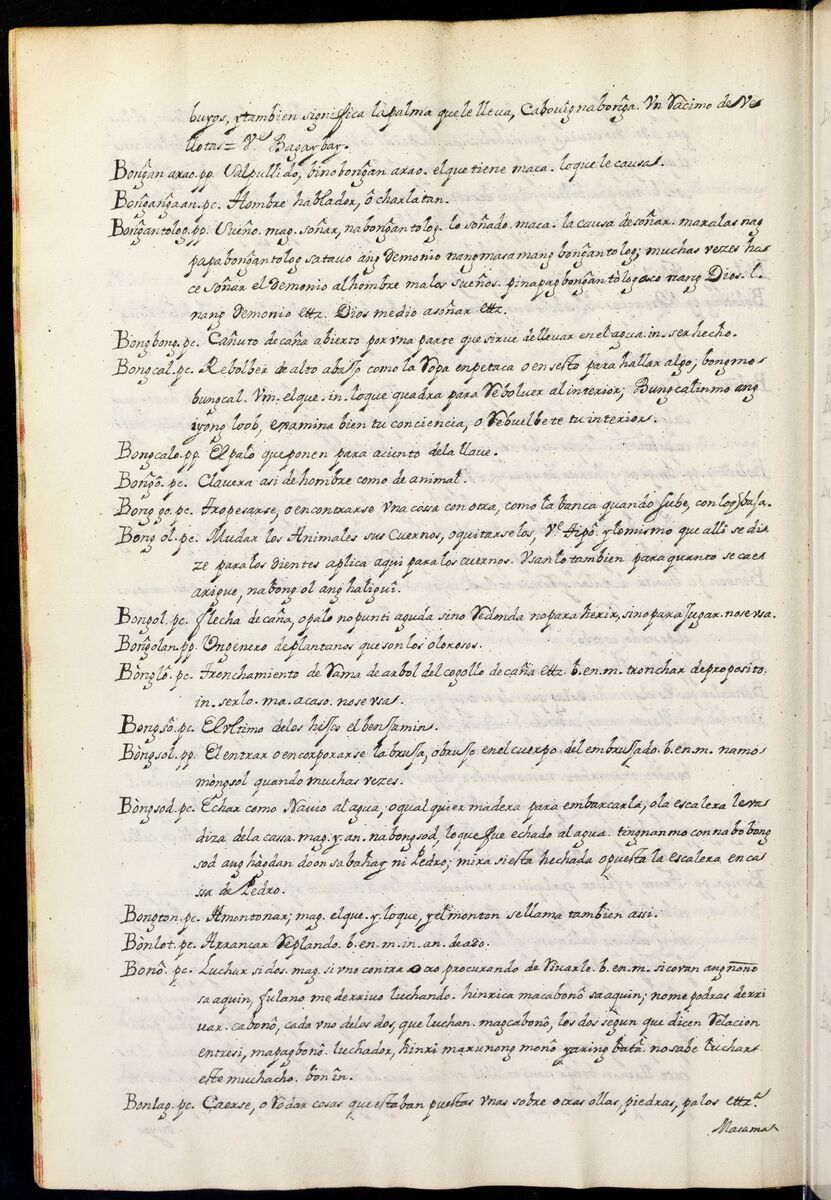 buyos, y tambien significa la palma que le lleva, Cabouig na bong̃a. Vn Racimo de Ve
llotas = Vᵉ Bagaybay.
Bong̃an arao. pp. Salpullido, bino bong̃an arao. el que tiene maca. lo que le causa.
Bong̃ang̃aan. pc. Hombre hablador, ô charlatan.
Bong̃antolog. pp. Sueño. mag. soñar, nabong̃antolog. lo soñado. maca. la causa de soñar. maralas nag
papabong̃antolog sa tauo ang demonio nang masamang bong̃antolog; muchas vezes ha
ce soñar el demonio al hombre malos sueños. pinapagbong̃antòlog aco nang Dios. l.
nang demonio ettz. Dios me dio a soñar ettz.
Bongbong. pc. Cañuto de caña abierto por vna parte que sirve de llevar en el agua. in. ser hecho.
Bongcal. pc. Rebolber de alto abasso como la Ropa en petaca o en sesto para hallar algo; bongmo
bungcal. Vm. el que. in. lo que quadra para Reboluer al interior; Bungcalin mo ang
iyong loob, examina bien tu conciencia, o Rebuelbete tu interior.
Bongcalo. pp. El palo que ponen para aciento de la llave.
Bong̃ô. pc. Clavera asi de hombre como de animal.
Bong go. pc. Tropesarse, o encontrarse vna cossa con otra, como la banca quando sube, con log̃ baja.
Bong ol. pc. Mudar los Animales sus Cuernos, o quitarselos, Vᵉ Tipô. y lo mismo que alli se di
ze para los dientes aplica aqui para los cuernos. Vsanlo tambien para quanto se cae
arigue, na bong ol ang haligui.
Bongol. pc. flecha de caña, o palo no punti aguda sino Redonda no para herir, sino para Jugar. nose vsa.
Bong̃olan. pp. Vn genero de plantanos que son los olorosos.
Bònglô. pc. Tronchamiento de Rama de arbol del cogollo de caña ettz. b. en. m. tronchar de proposito.
in. serlo. ma. acaso. nose vsa.
Bongsô. pc. El vltimo de los hissos el bensamin.
Bòngsol. pp. El entrar o encorporarse la brusa, o bruso en el cuerpo del embrussado. b. en. m. namo
mòngsol quando muchas vezes.
Bòngsod. pc. Echar como Navio al agua, o qual quier madera para embarcarla, o la escalera leva
diza de la cassa. mag. y. an. nabongsod, lo que fue echado al agua. tingnan mo con nabobong
sod ang hàgdan doon sa bahay ni Pedro; mira si esta hechada o puesta la escalera en ca
ssa de Pedro.
Bongton. pc. Amontonar; mag. el que. y. lo que, y el monton se llama tambien assi.
Bònlot. pc. Arrancar Replando. b. en. m. in. an. de a do.
Bonô. pc. Luchar si dos. mag. si vno contra otro procurando derivarle. b. en. m. si covan ang nono
sa aquin, fulano me derrivo luchando. hindica macabonô sa aquin; no me podras derri
uar. cabonô, cada vno de los dos, que luchan. magcabonô, los dos segun que dicen Relacion
entre si, mapagbonô luchador, hindi marunong monô yaring bata. no sabe luchar
este muchacho. bonin.
Bonlag. pc. Caerse, o Rodar cosas que estaban puestas vnas sobre otras ollas, piedras, palos ettz.ᵃ
Masama